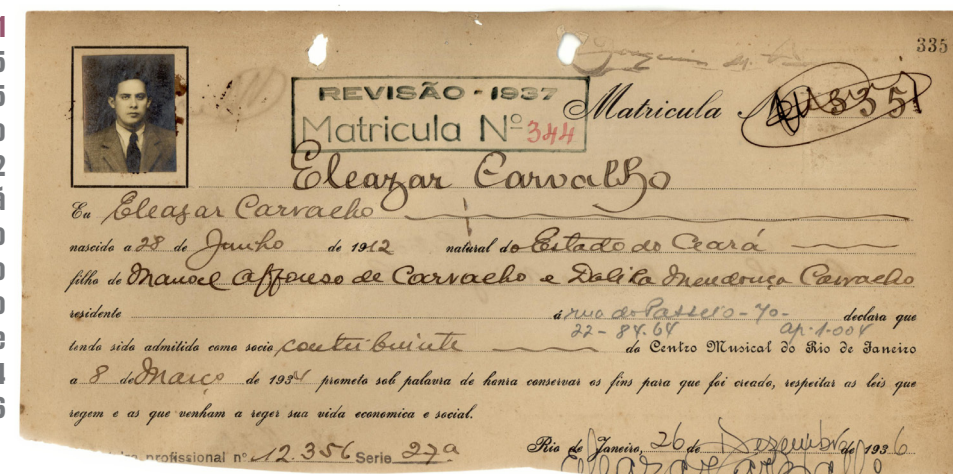 335
REVISÃO - 1937
Matricula Nº 344
Matricula Nº 335
Eleazar Carvalho
Eu Eleazar Carvalho
nascido a 28 de Junho de 1912 natural do Estado do Ceará
filho de Manoel Affonso de Carvalho e Dalila Mendonça Carvalho
residente á rua do Passeio - 70 - declara que
22-84.64 ap. 1.004
tendo sido admitido como socio contribuinte do Centro Musical do Rio de Janeiro
a 8 de Março de 1934 prometo sob palavra de honra conservar os fins para que foi creado, respeitar as leis que
regem e as que venham a reger sua vida economica e social.
profissional nº 12.356 Serie 27a
Rio de Janeiro, 26 de Dezembro de 1936